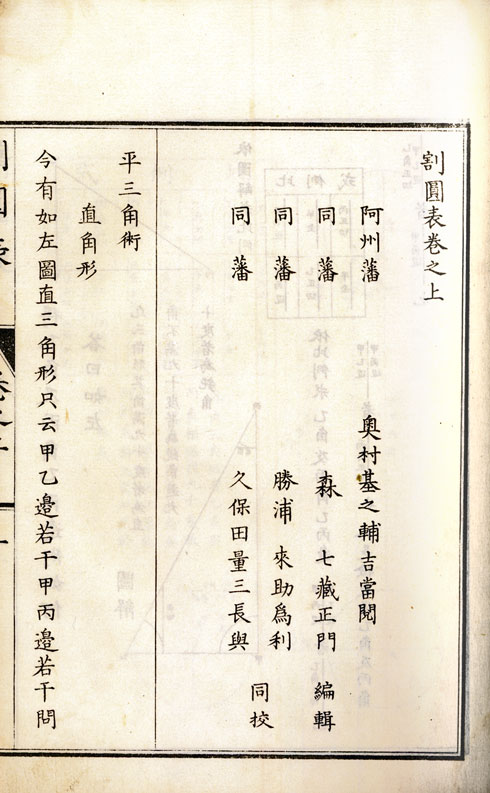 割圓表卷之上
阿州藩 奧村基之輔吉當閱
同藩 森 七藏正門 編輯
同藩 勝浦 來助爲利
同藩 久保田量三長與
同挍
平三角術
直角形
今有如左圖直三角形只云甲乙邊若干甲丙邊若干問